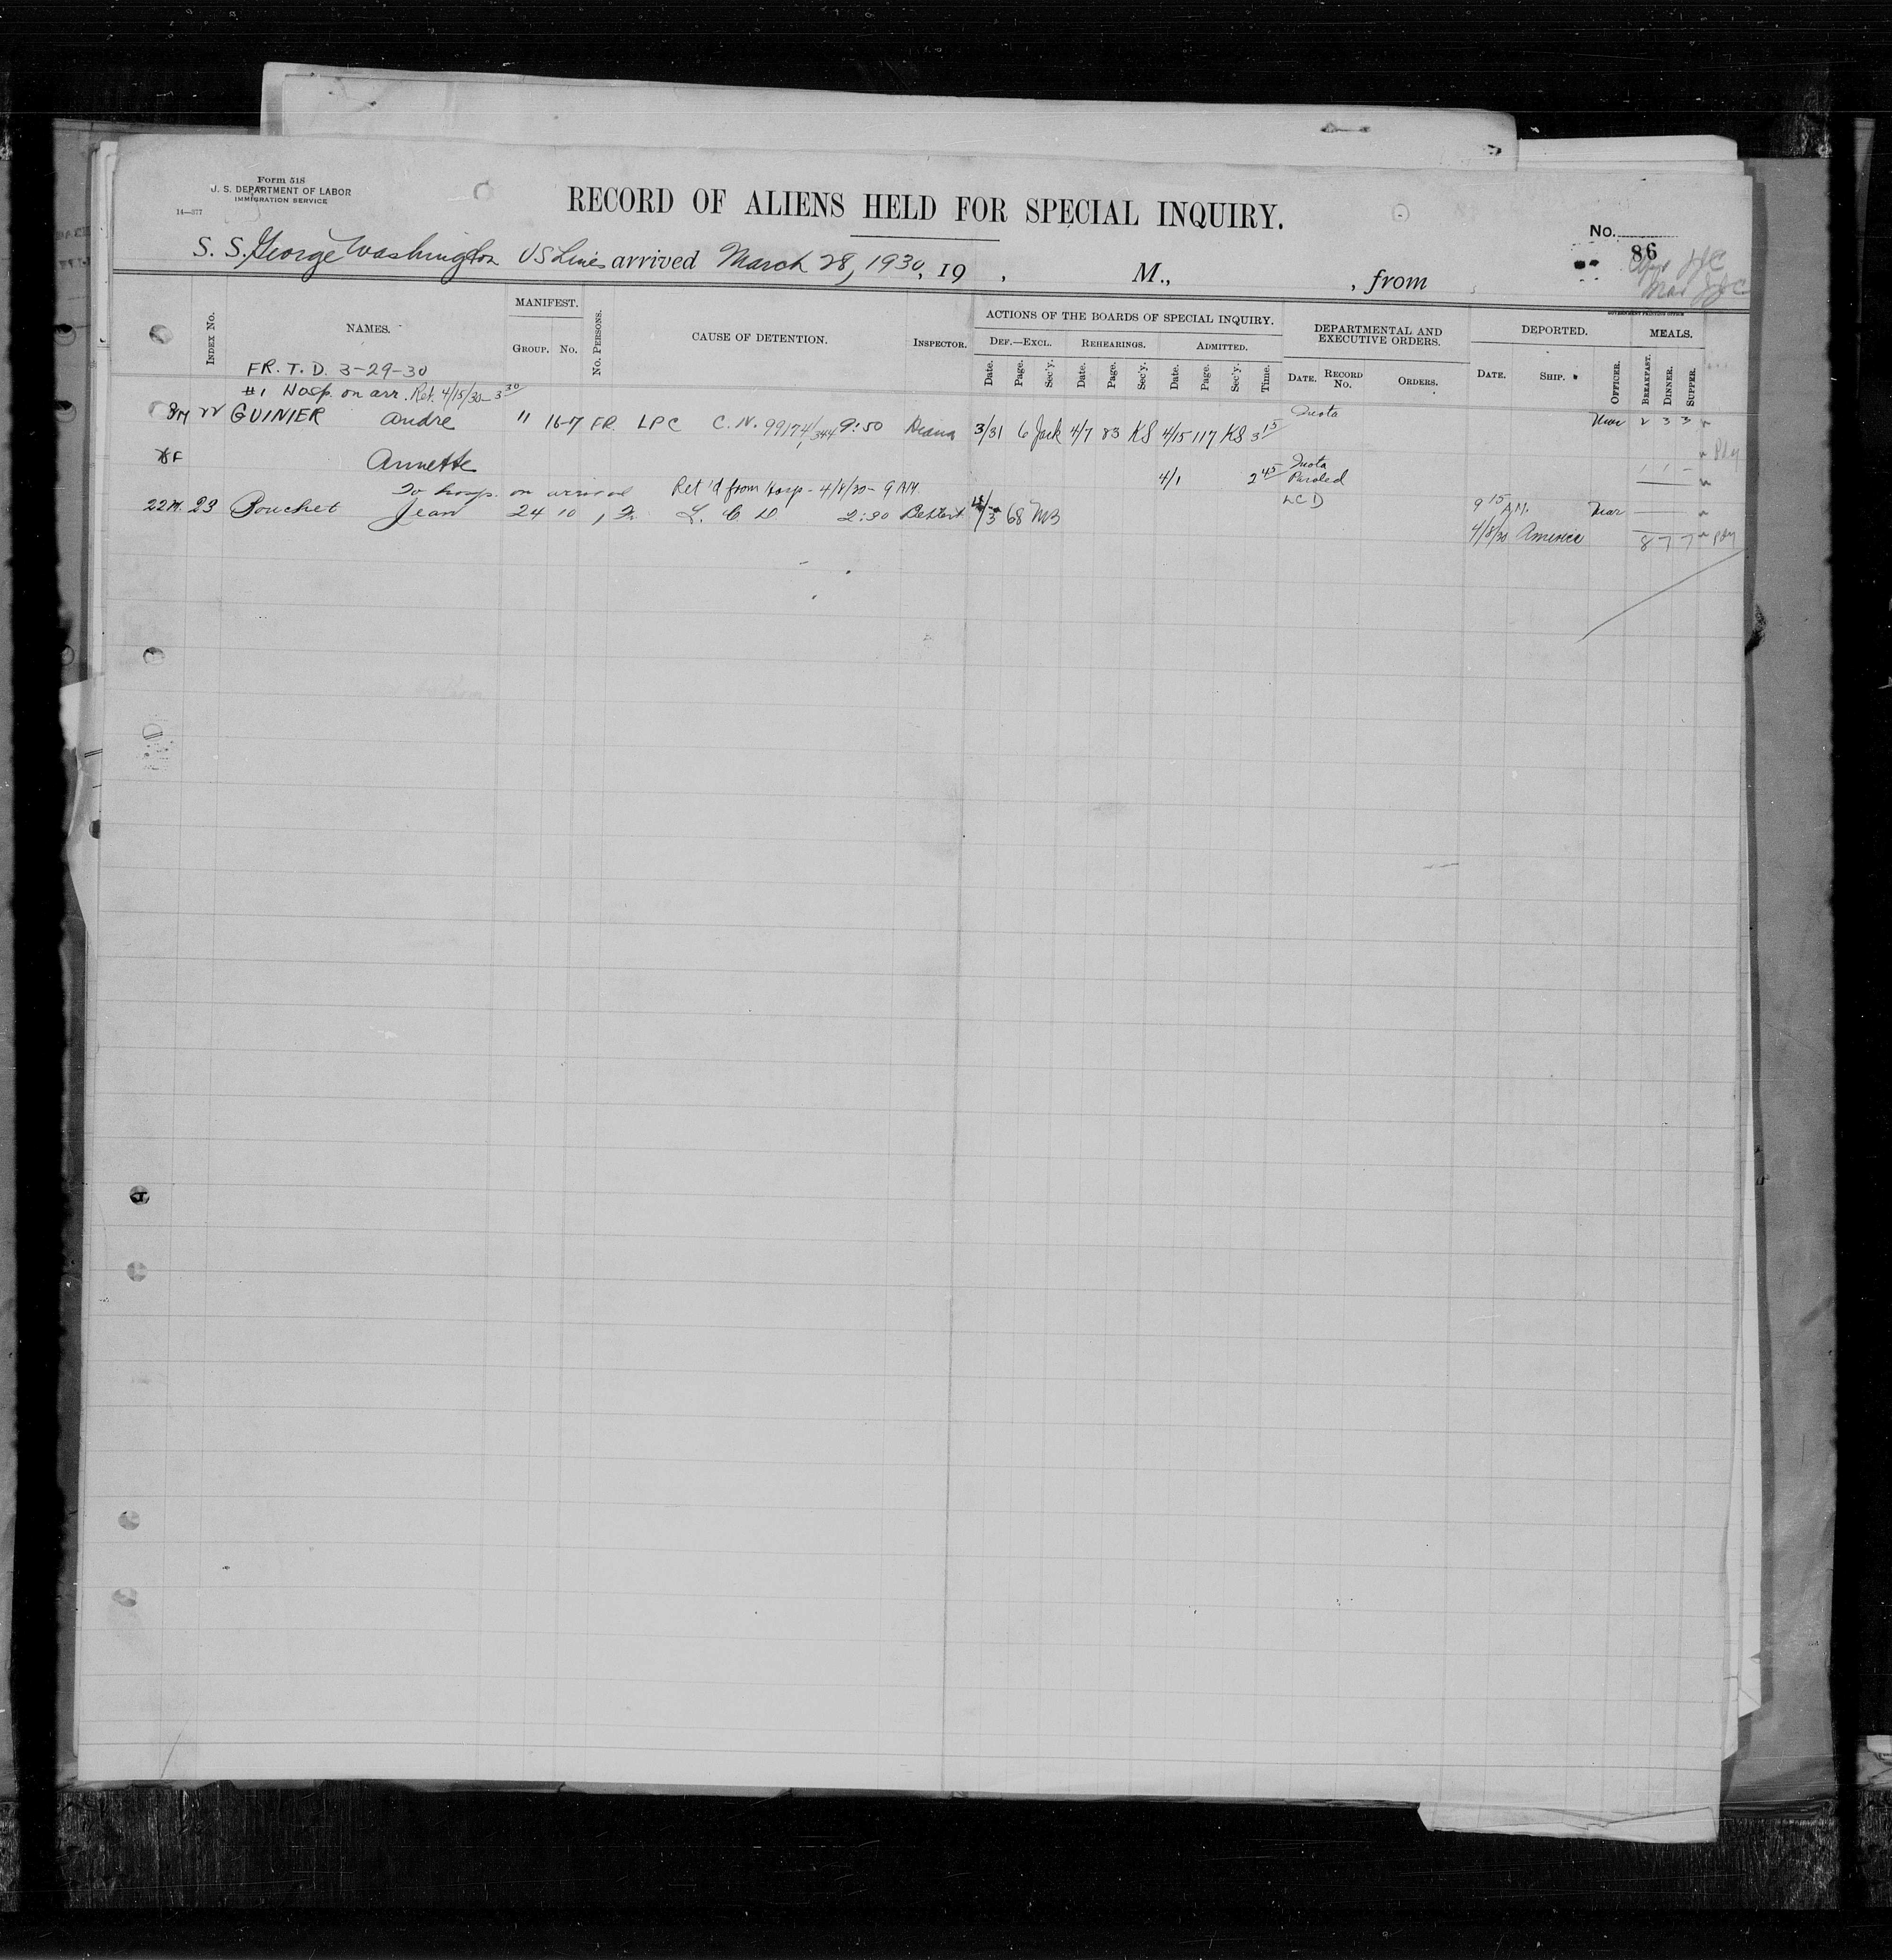 Form 518
U. S. DEPARTMENT OF LABOR
IMMIGRATION SERVICE
14—377
RECORD OF ALIENS HELD FOR SPECIAL INQUIRY.
No.
86
S. S. George Washington US Lines arrived March 28, 1930, 19 , M., , from
GOVERNMENT PRINTING OFFICE
INDEX No. NAMES. MANIFEST. GROUP. No. No. PERSONS. CAUSE OF DETENTION. INSPECTOR. ACTIONS OF THE BOARDS OF SPECIAL INQUIRY. DEF.—EXCL. Date. Page. Sec'y. REHEARINGS. Date. Page. Sec'y. ADMITTED. Date. Page. Sec'y. Time. DEPARTMENTAL AND EXECUTIVE ORDERS. DATE. RECORD No. ORDERS. DEPORTED. DATE. SHIP. OFFICER. MEALS. BREAKFAST. DINNER. SUPPER.
FR. T. D. 3-29-30
#1 Hosp. on arr. Ret. 4/15/30 - 3 30
8M 22 GUINIER Andre " 16-7 FR. LPC C. N. 99174/344 9:50 3/31 6 Jack 4/7 83 KS 4/15 117 KS 3 15 2 3 3
F Annette 4/1 2 45 Paroled 1 1 -
To hosp. on arrival Ret'd from Hosp - 4/8/30 - 9 AM. LCD
22M. 23 Bouchet Jean 24 10 1 Fr. L. C. D 2:30 4/3 68 MB 9 15 A.M.
4/8/30 America 8 7 7